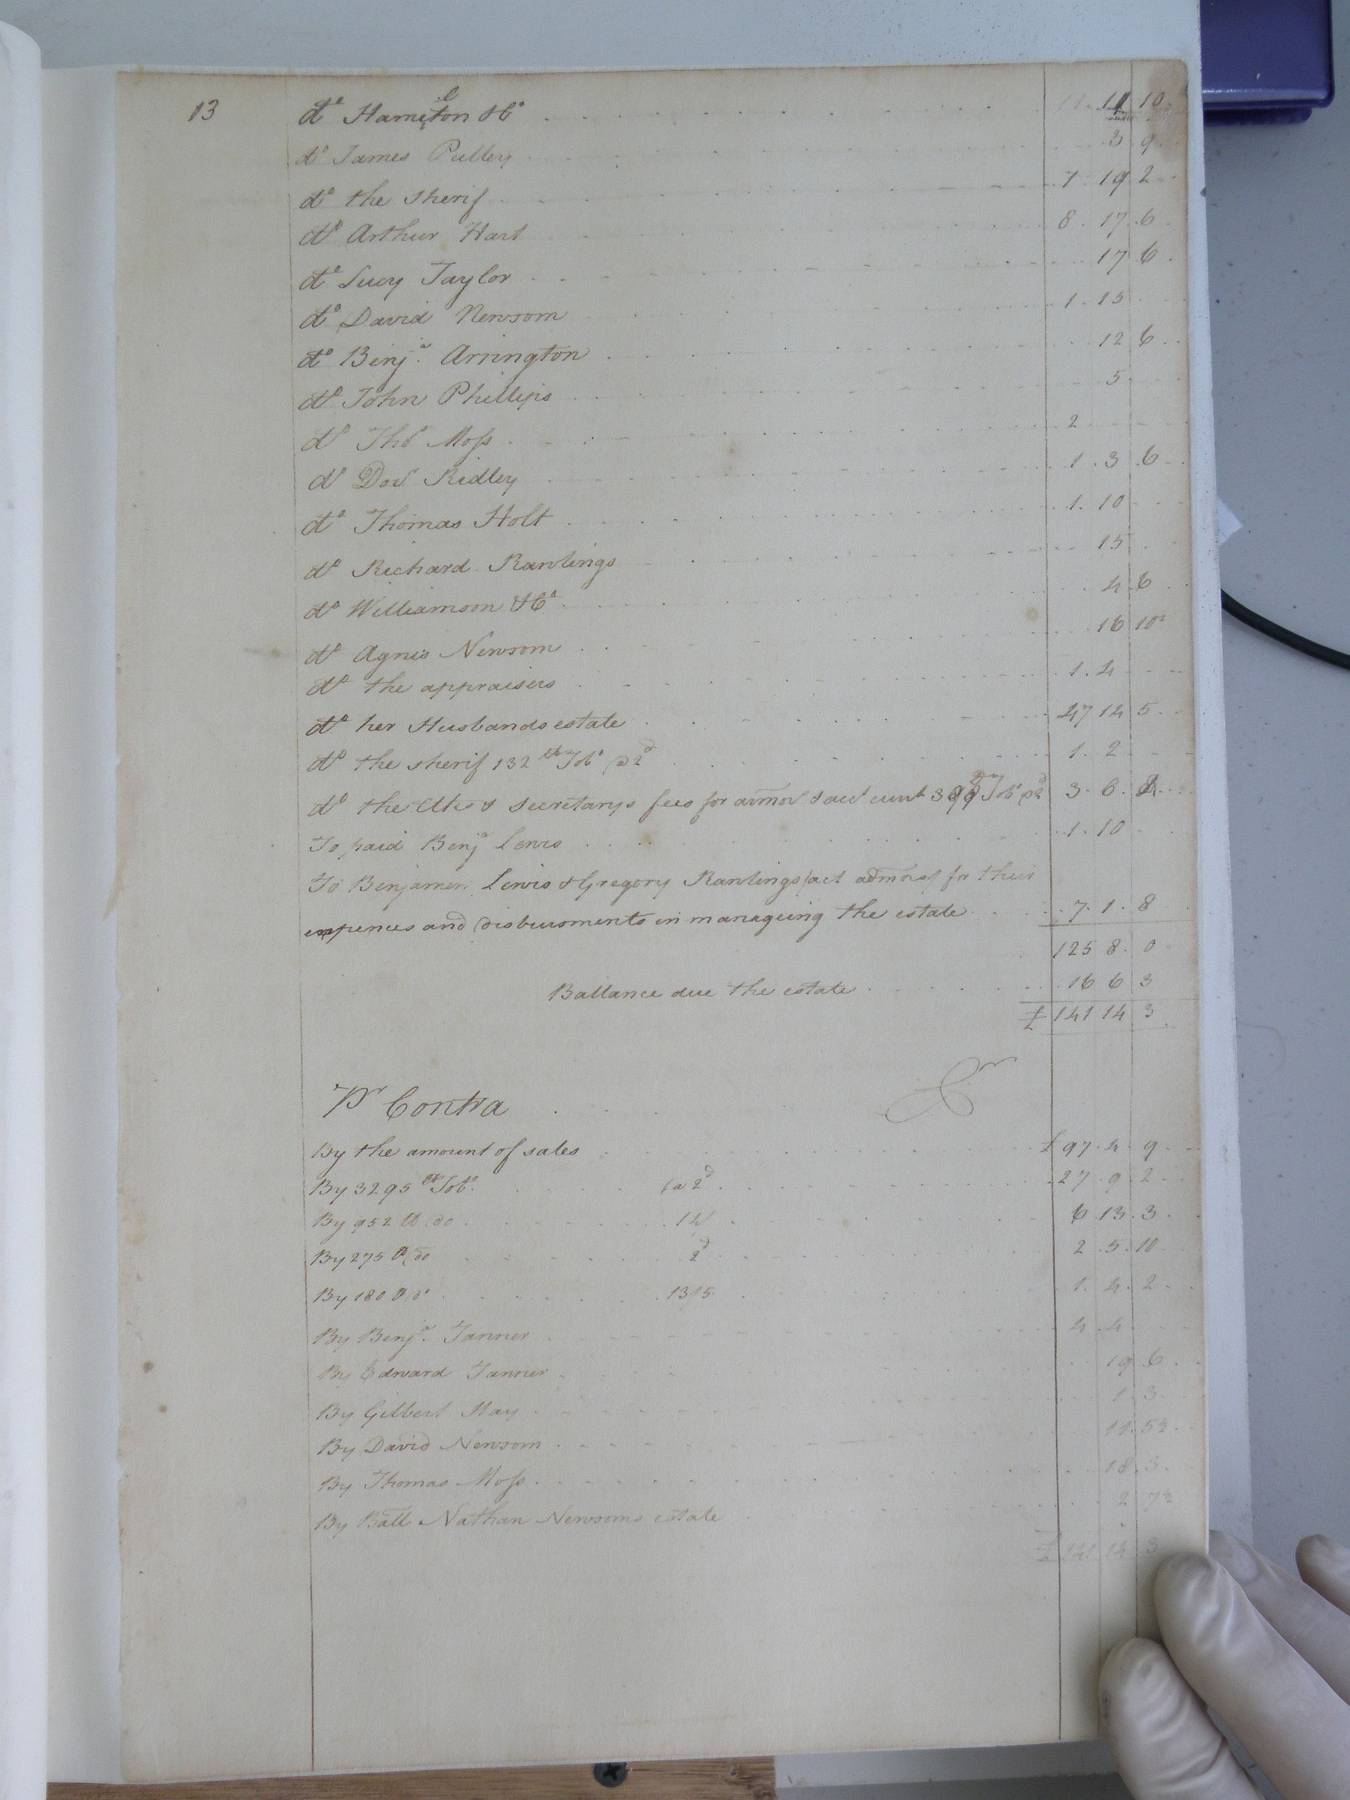 13 do Hamilton & Co 11 10
do James Pulley 3 9
do the Sherif 7 19 2
do Arthur Hart 8 17 6
do Lucy Taylor 17 6
do David Newsom 1 15
do Benja Arrington 12 6
do John Phillips 5
do Tho Moss 2
do Ridley 1 3 6
do Thomas Holt 1 10
do Richard Rawlings 15
do Williamson & Co 4 6
do Agnis Newsom 16 10
do the appraisers 1 4
do her Husbands estate 47 14 5
do the sherif 132 lb Tobo @ 2d 1 2
do the Clks & Secretarys fees for admon & acct Tobo @ 2d 3 6
To paid Benja Lewis 1 10
To Benjamen Lewis & Gregory Rawlings act admors for their
expences and disbursments in manageing the estate 7 1 8
125 8 0
Ballance due the estate 16 6 3
£ 141 14 3
Pr Contra Cr
By the amount of sales £ 97 4 9
By 3295 lb Tobo @ 2d 27 9 2
By 952 lb do 14/ 6 13 3
By 275 lb do 2d 2 5 10
By 180 lb do 13/5 1 4 2
By Benja Tanner 4 4
By Edward Tanner 19 6
By Gilbert Hay 1 3
By David Newsom 11 5½
By Thomas Moss 18 3
By Ball Nathan Newsoms estate 2 7½
£ 141 14 3